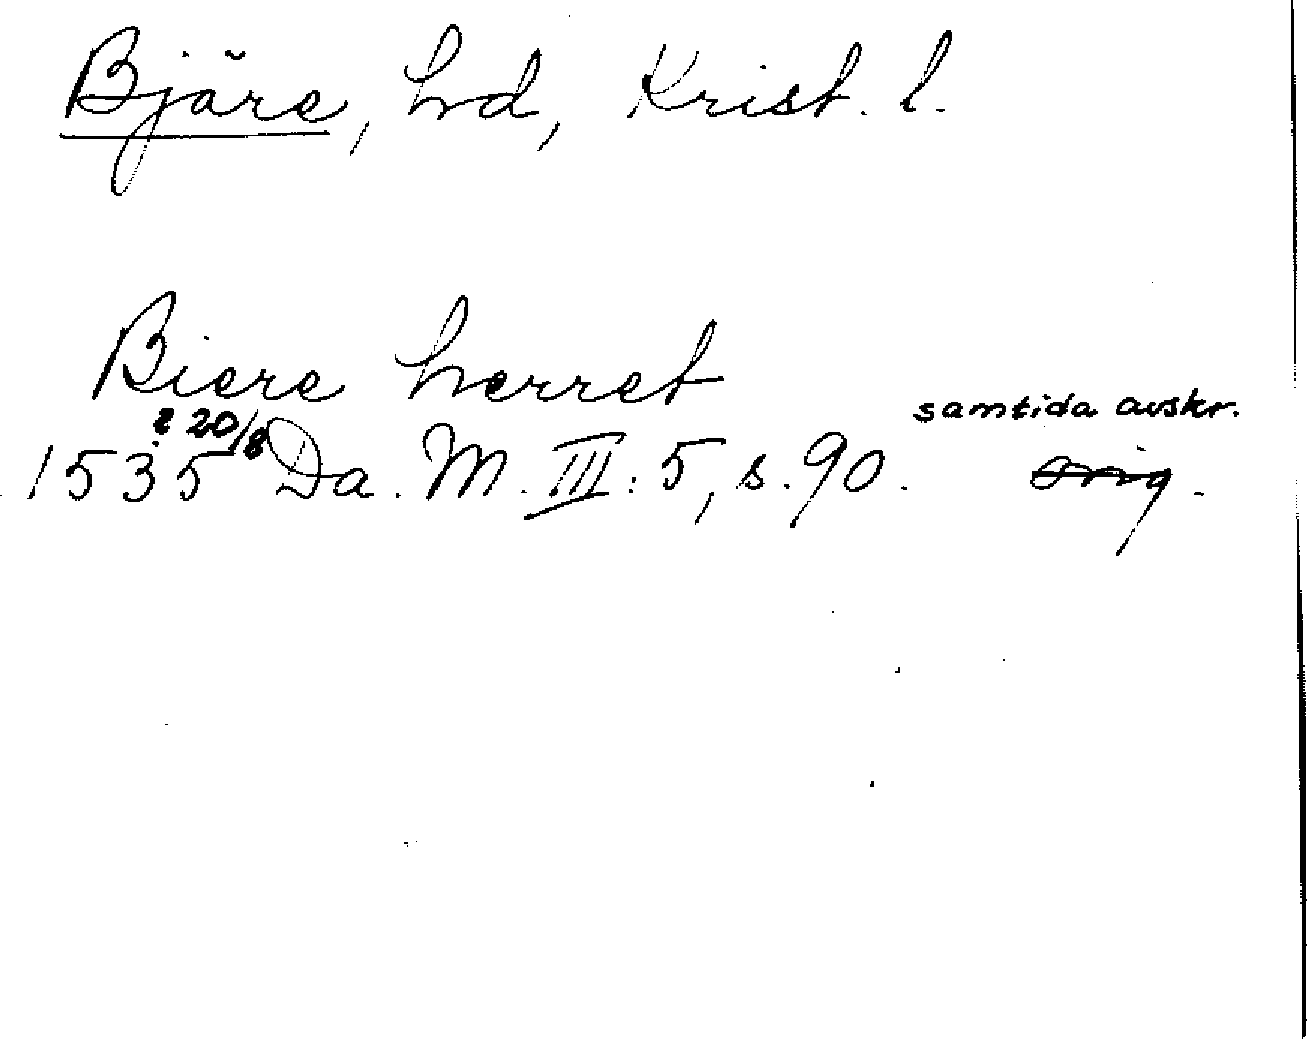 Bjäre, hd, Krist. l.
Biere herret
samtida avskr.
1535 20/8 Da. M. III: 5, s. 90. orig.